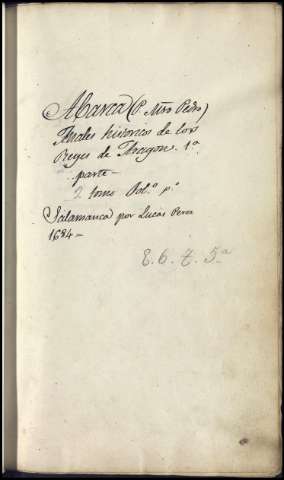 Abarca (P. Mro Pedro)
Anales historicos de los
Reyes de Aragon. 1ª
parte -
2 tomo Fol.º p.º
Salamanca por Lucas Perez
1684 -
E. 6. t. 5ª